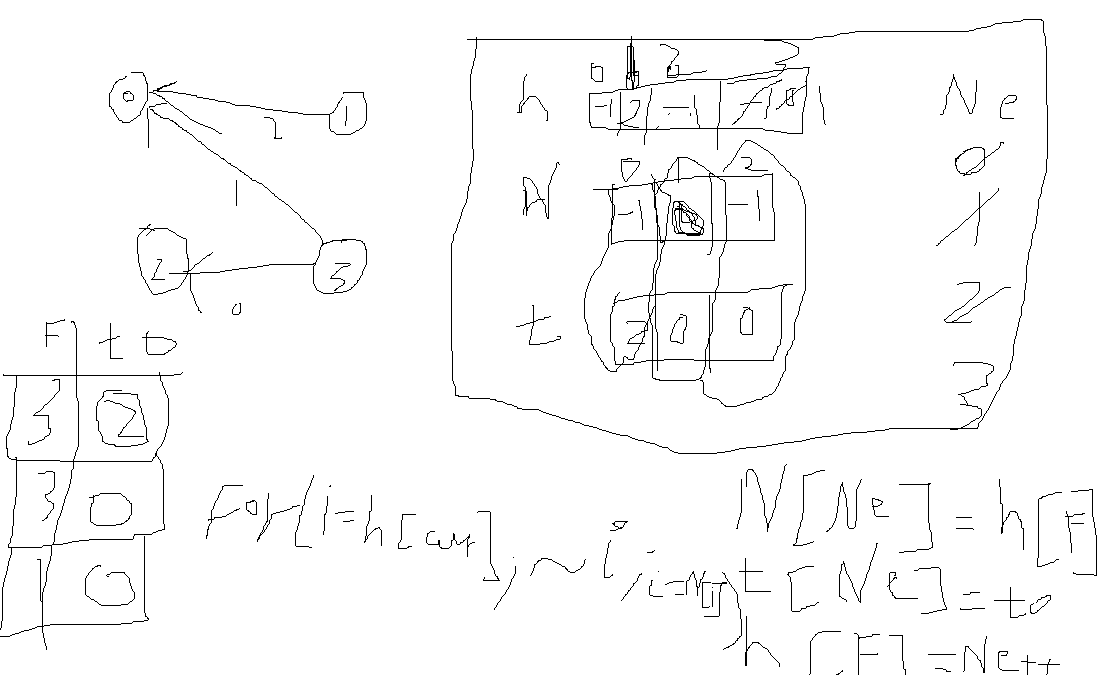 0
1
2
1
2
3
0
F to
3 2
3 0
1 0
0 2 3
h -1 2 -1
N 0 2
-1 -1
t 2 0 0
Ne
0
1
2
3
For(i=h[cur]; ~i; i=N[i])
N[Ne]=h[F]
t[Ne]=to
h[F]=Ne++